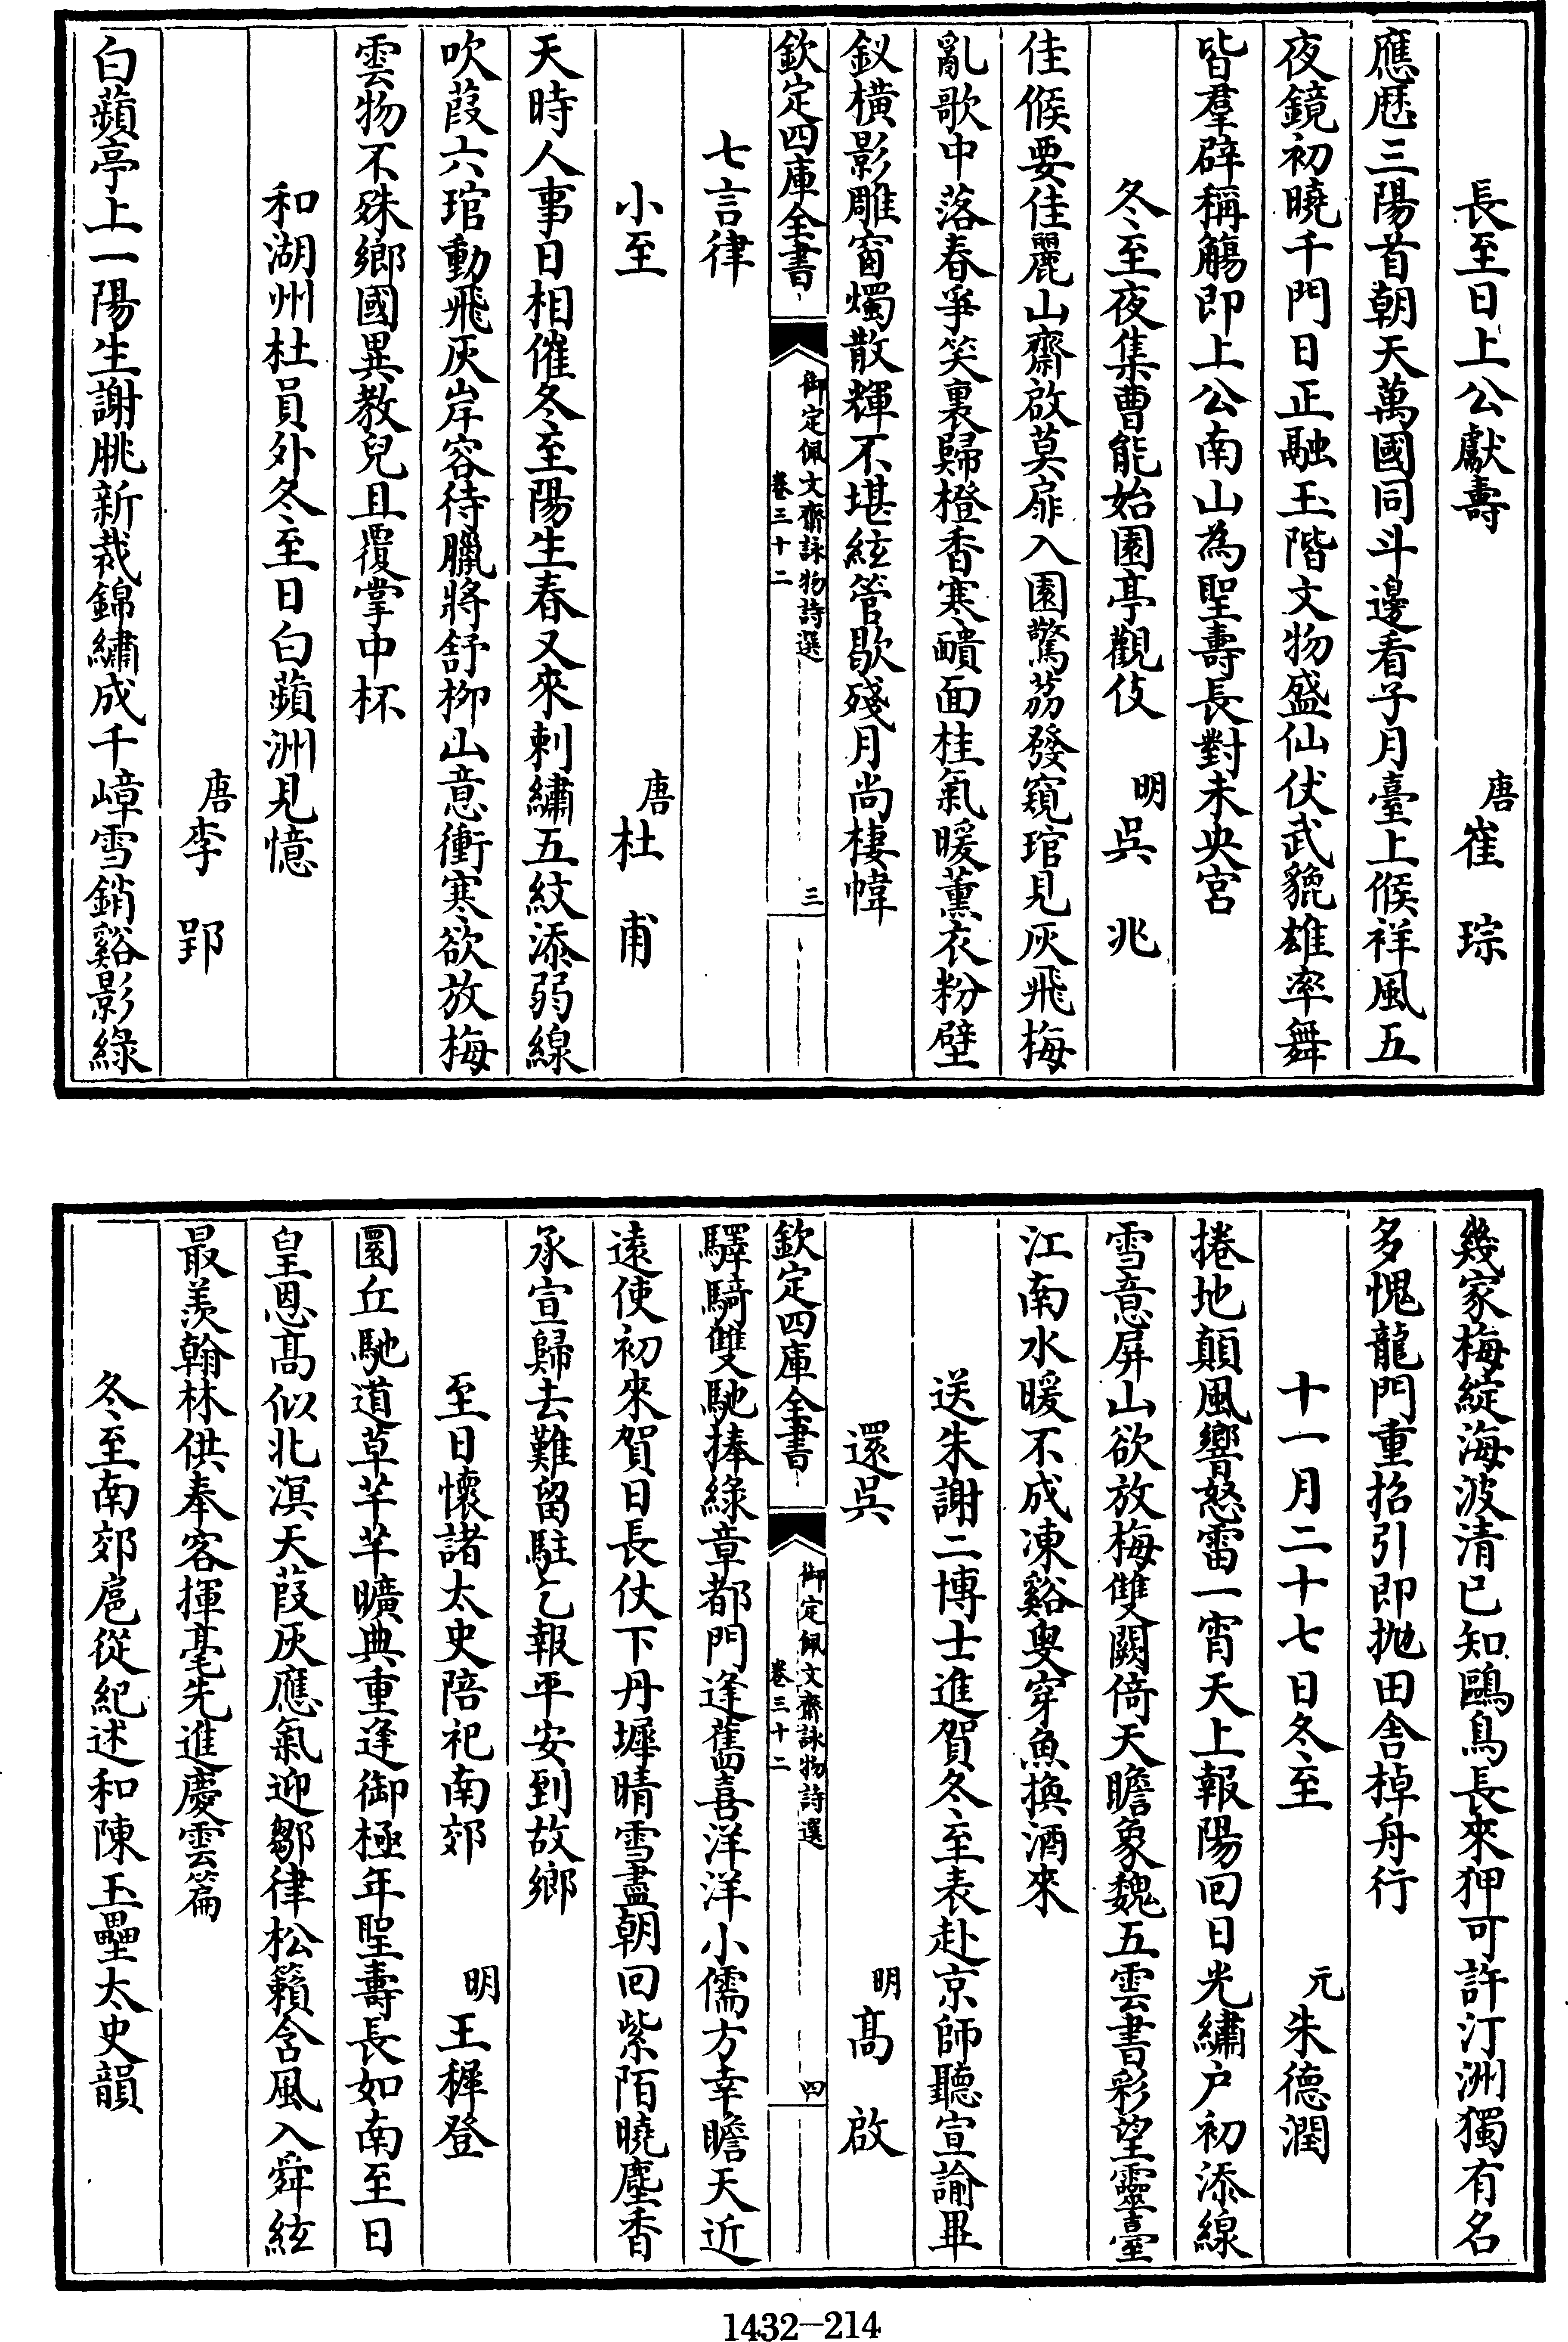 長至日上公獻壽
唐崔琮
應厯三陽首朝天萬國同斗邊看子月臺上候祥風五
夜鏡初曉千門日正融玉階文物盛仙仗武貔雄率舞
皆羣辟稱觴即上公南山為聖壽長對未央宮
冬至夜集曹能始園亭觀伎
明吳兆
佳候要佳麗山齋啟莫扉入園驚荔發窺琯見灰飛梅
亂歌中落春爭笑裏歸橙香寒醩面桂氣暖薰衣粉壁
釵橫影雕窗燭散輝不堪絃管歇殘月尚棲幃
欽定四庫全書
御定佩文齋詠物詩選
卷三十二
三
七言律
小至
唐杜甫
天時人事日相催冬至陽生春又來刺繡五紋添弱線
吹葭六琯動飛灰岸容待臘將舒柳山意衝寒欲放梅
雲物不殊鄉國異教兒且覆掌中杯
和湖州杜員外冬至日白蘋洲見憶
唐李郢
白蘋亭上一陽生謝朓新裁錦繡成千嶂雪銷谿影綠
幾家梅綻海波清已知鷗鳥長來狎可許汀洲獨有名
多愧龍門重招引即抛田舍棹舟行
十一月二十七日冬至
元朱德潤
捲地顛風響怒雷一宵天上報陽回日光繡户初添線
雪意屏山欲放梅雙闕倚天瞻象魏五雲書彩望靈臺
江南水暖不成凍谿叟穿魚換酒來
送朱謝二博士進賀冬至表赴京師聽宣諭畢
還吳
明髙啟
欽定四庫全書
御定佩文齋詠物詩選
卷三十二
四
驛騎雙馳捧綠章都門逢舊喜洋洋小儒方幸瞻天近
遠使初來賀日長仗下丹墀晴雪盡朝回紫陌曉塵香
承宣歸去難留駐乞報平安到故鄉
至日懷諸太史陪祀南郊
明王穉登
圜丘馳道草芊芊曠典重逢御極年聖壽長如南至日
皇恩髙似北溟天葭灰應氣迎鄒律松籟含風入舜絃
最羡翰林供奉客揮毫先進慶雲篇
冬至南郊扈從紀述和陳玉壘太史韻
1432-214